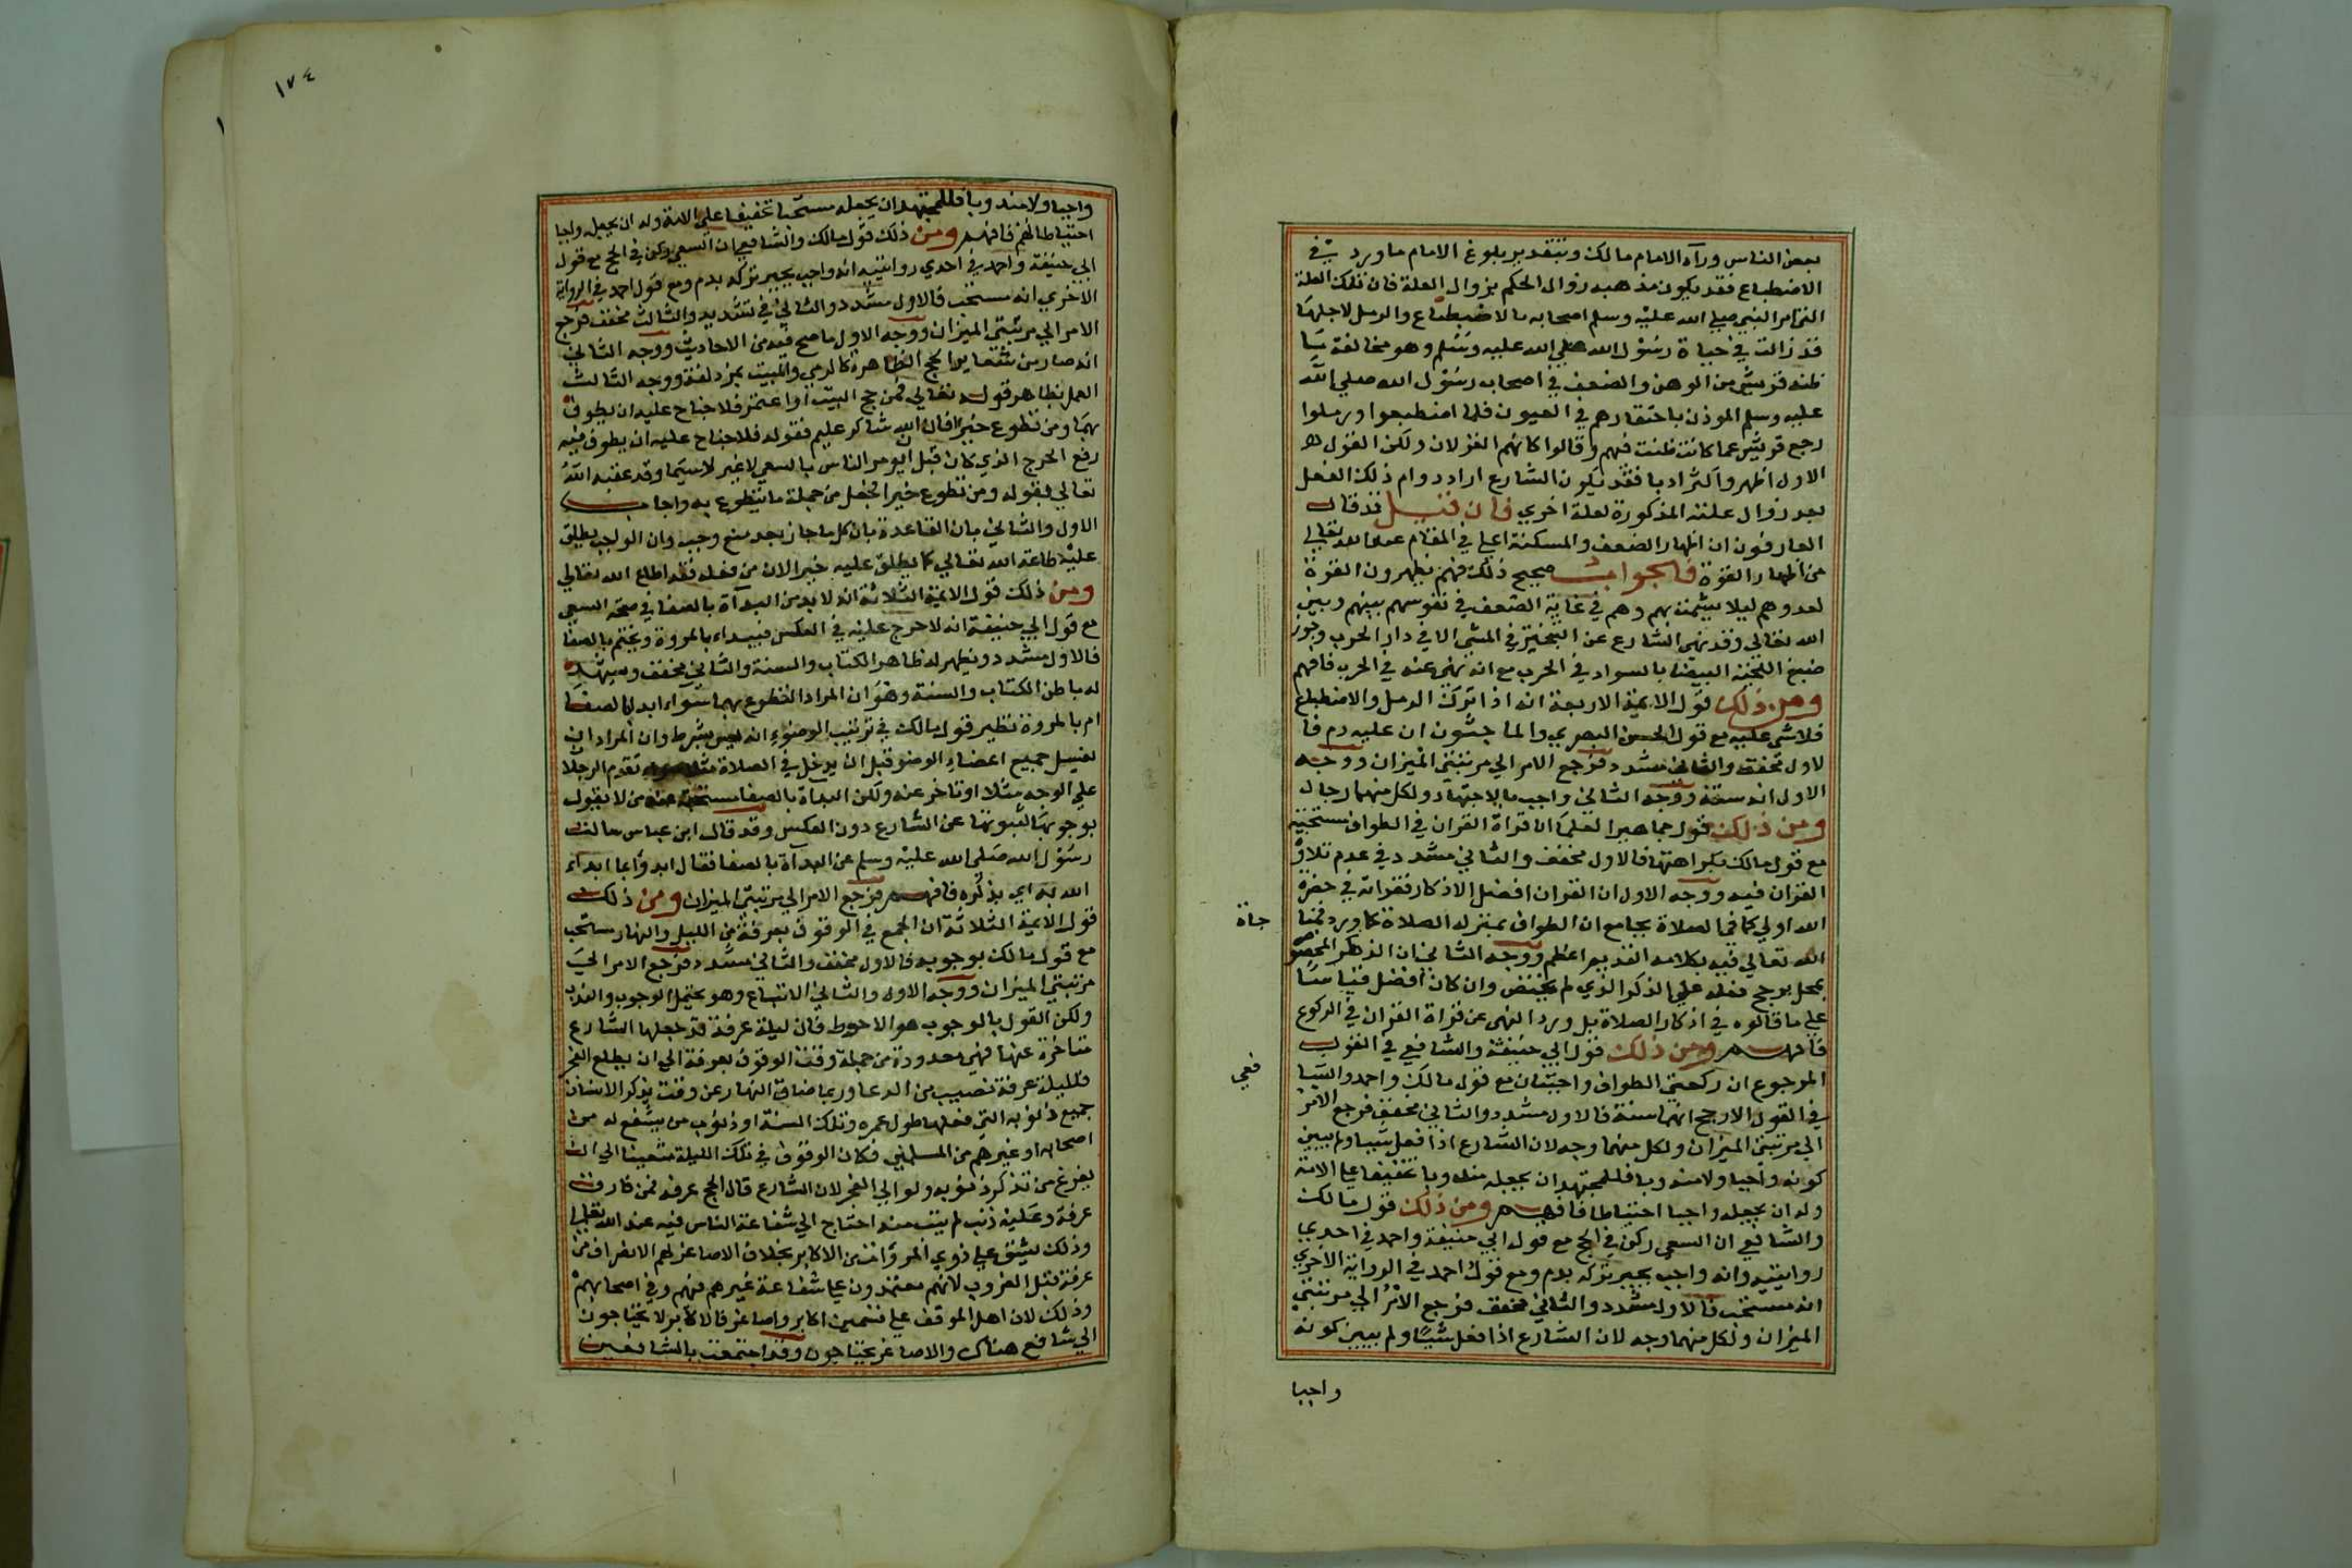 بعض الناس ورآء الامام مالك وبتقدير بلوغ الامام ما ورد في
الاضطباع فقد يكون مذهبه زوال الحكم بزوال العلة فان تلك العلة
التي امر النبي صلي الله عليه وسلم اصحابه بالاضطباع والرمل لاجلها
قد زالت في حياة رسول الله صلي الله عليه وسلم وهو مخالفة ما
ظنه قريش من الوهن والضعف في اصحاب رسول الله صلي الله
عليه وسلم الموذن باحتقارهم في العيون فلما اضطبعوا ورملوا
رجع قريش عما كانت ظنت فيهم وقالوا كانهم الغزلان ولكن القول
الاول اظهر واكثر ادبا فقد يكون الشارع اراد دوام ذلك الفعل
بعد زوال علته المذكورة لعلة اخري فان قيل قد قال
العارفون ان اظهار الضعف والمسكنة اعلي في المقام عند الله تعالي
من اظهار القوة فالجواب صحيح ذلك فهم يظهرون القوة
لعدوهم ليلا يشمت بهم وهم في غاية الضعف في نفوسهم بينهم وبين
الله تعالي وقد نهي الشارع عن التبختر في المشي الا في دار الحرب وجوز
صبغ اللحية البيضا بالسواد في الحرب مع انه نهي عنه في الحرب فافهم
ومن ذلك قول الايمة الاربعة انه اذا ترك الرمل والاضطباع
فلا شي عليه مع قول الحسن البصري والماجشون ان عليه دم فا
لاول مخفف والثاني مشدد فرجع الامر الي مرتبتي الميزان ووجه
الاول انه سنة ووجه الثاني واجب بالاجتهاد ولكل منهما رجال
ومن ذلك قول جماهير العلما ان قراة القران في الطواف مستحبة
مع قول مالك بكراهتها فالاول مخفف والثاني مشدد في عدم تلاوة
القران فيه ووجه الاول ان القران افضل الاذكار فقراته في حضرة
الله اولي كما في الصلاة بجامع ان الطواف بمنزلة الصلاة كما ورد فمنا
جاة
الله تعالي فيه بكلامه القديم اعظم ووجه الثاني ان الذكر المخصوص
بمحل يرجح فعله علي الذكر الذي لم يختص وان كان افضل قياسا
علي ما قالوه في اذكار الصلاة بل ورد النهي عن قراة القران في الركوع
فافهم ومن ذلك قول ابي حنيفة والشافعي في القول
المرجوع ان ركعتي الطواف واجبتان مع قول مالك واحمد والشا
فعي
في القول الارجح انهما سنة فالاول مشدد والثاني مخفف فرجع الامر
الي مرتبتي الميزان ولكل منهما وجه لان الشارع اذا فعل شيا ولم يبين
كونه واجبا ولا مندوبا فللمجتهد ان يجعله مندوبا تخفيفا علي الامة
وله ان يجعله واجبا احتياطا فافهم ومن ذلك قول مالك
والشافعي ان السعي ركن في الحج مع قول ابي حنيفة واحمد في احدي
روايتيه وانه واجب يجبر تركه بدم ومع قول احمد في الرواية الاخري
انه مستحب فالاول مشدد والثاني مخفف فرجع الامر الي مرتبتي
الميزان ولكل منهما وجه لان الشارع اذا فعل شيئا ولم يبين كونه
واجبا
١٧٤
واجبا ولا مندوبا فللمجتهد ان يجعله مستحبا تخفيفا علي الامة وله ان يجعله واجبا
احتياطا لهم فافهم ومن ذلك قول مالك والشافعي ان السعي ركن في الحج مع قول
ابي حنيفة واحمد في احدي روايتيه انه واجب يجبر تركه بدم ومع قول احمد في الرواية
الاخري انه مستحب فالاول مشدد والثاني في تشديد والثالث مخفف فرجع
الامر الي مرتبتي الميزان ووجه الاول ما صح فيه من الاحاديث ووجه الثاني
انه صار من شعاير الحج الظاهرة كالرمي والمبيت بمزدلفة ووجه الثالث
العمل بظاهر قوله تعالي فمن حج البيت او اعتمر فلا جناح عليه ان يطوف
بهما ومن تطوع خيرا فان الله شاكر عليم فقوله فلا جناح عليه ان يطوف فيه
رفع الحرج الذي كان قبل ان يومر الناس بالسعي لا غير لا سيما وقد عقبه الله
تعالي بقوله ومن تطوع خيرا فجعل من جملة ما يتطوع به واجاب
الاول والثاني بان القاعدة بان كل ما جاز بعد منع وجب وان الواجب يطلق
عليه طاعة الله تعالي كما يطلق عليه خيرا لان من فعله فقد اطاع الله تعالي
ومن ذلك قول الايمة الثلاثة انه لا بد من البدآة بالصفا في صحة السعي
مع قول ابي حنيفة انه لا حرج عليه في العكس فيبداء بالمروة ويختم بالصفا
فالاول مشدد ويظهر له ظاهر الكتاب والسنة والثاني مخفف وسيهد
له باطن الكتاب والسنة وهو ان المراد التطوع بهما سواء ابدا بالصفا
ام بالمروة نظير قول مالك في ترتيب الوضوء انه ليس بشرط وان المراد ان
يغسل جميع اعضاء الوضو قبل ان يدخل في الصلاة تقدم الرجلان
علي الوجه مثلا او تاخر عنه ولكن البداة بالصفا مستحبة عند من لا يقول
بوجوبها لثبوتها عن الشارع دون العكس وقد قال ابن عباس سالت
رسول الله صلي الله عليه وسلم عن البداة بالصفا فقال ابدؤا بما ابداء
الله به اي بذكره فافهم فرجع الامر الي مرتبتي الميزان ومن ذلك
قول الايمة الثلاثة ان الجمع في الوقوف بعرفة بين الليل والنهار مستحب
مع قول مالك بوجوبه فالاول مخفف والثاني مشدد فرجع الامر الي
مرتبتي الميزان ووجه الاول والثاني الاتباع وهو يحتمل الوجوب والندب
ولكن القول بالوجوب هو الاحوط فان ليلة عرفة قد جعلها الشارع
متاخرة عنها فهي معدودة من جملة وقت الوقوف بعرفة الي ان يطلع الفجر
فلليلة عرفة نصيب من الدعا وربما ضاق النهار عن وقت يذكر الانسان
جميع ذنوبه التي فعلها طول عمره وتلك السنة او ذنوب من يشفع له من
اصحابه او غيرهم من المسلمين فكان الوقوف في تلك الليلة متعينا الي ان
يفرغ من تذكر ذنوبه ولو الي الفجر لان الشارع قال الحج عرفة فمن فارق
عرفة وعليه ذنب لم يتب منه احتاج الي شفاعة الناس فيه عند الله تعالي
وذلك يشق علي ذوي المروآت من الاكابر بخلاف الاصاغر لهم الانصراف من
عرفة قبل الغروب لانهم معتمدون علي شفاعة غيرهم فيهم وفي اصحابهم
وذلك لان اهل الموقف علي قسمين اكابر واصاغر فالاكابر لا يحتاجون
الي شافع هناك والاصاغر يحتاجون وقد اجتمعت بالشافعين